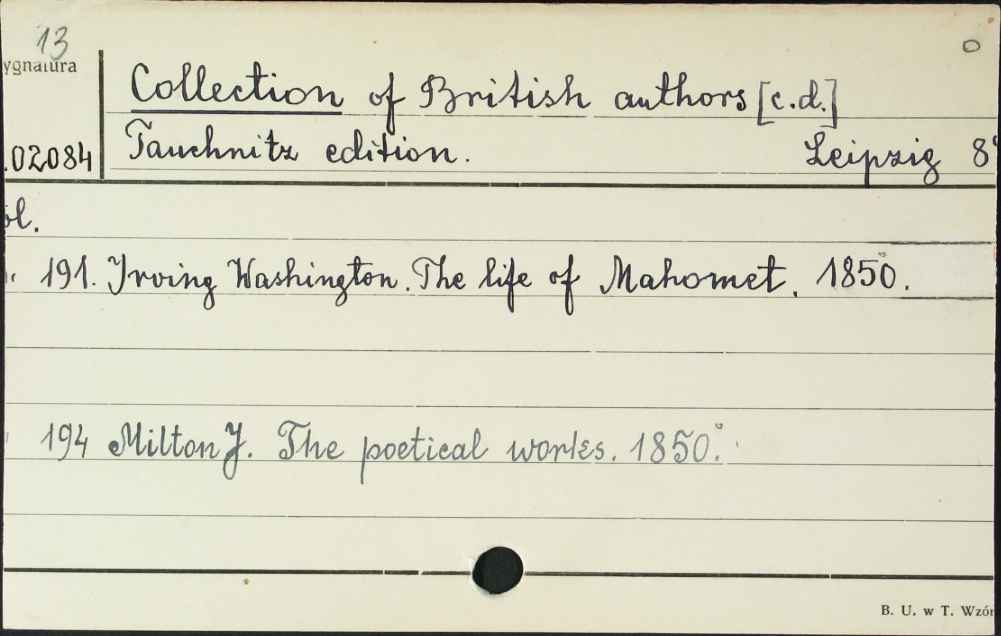 13
ygnatura
Collection of British authors [c.d.]
.02084
Tauchnitz edition. Leipzig 8°
ol.
191. Irving Washington. The life of Mahomet. 1850.
194 Milton J. The poetical works. 1850.
B. U. w T. Wzór